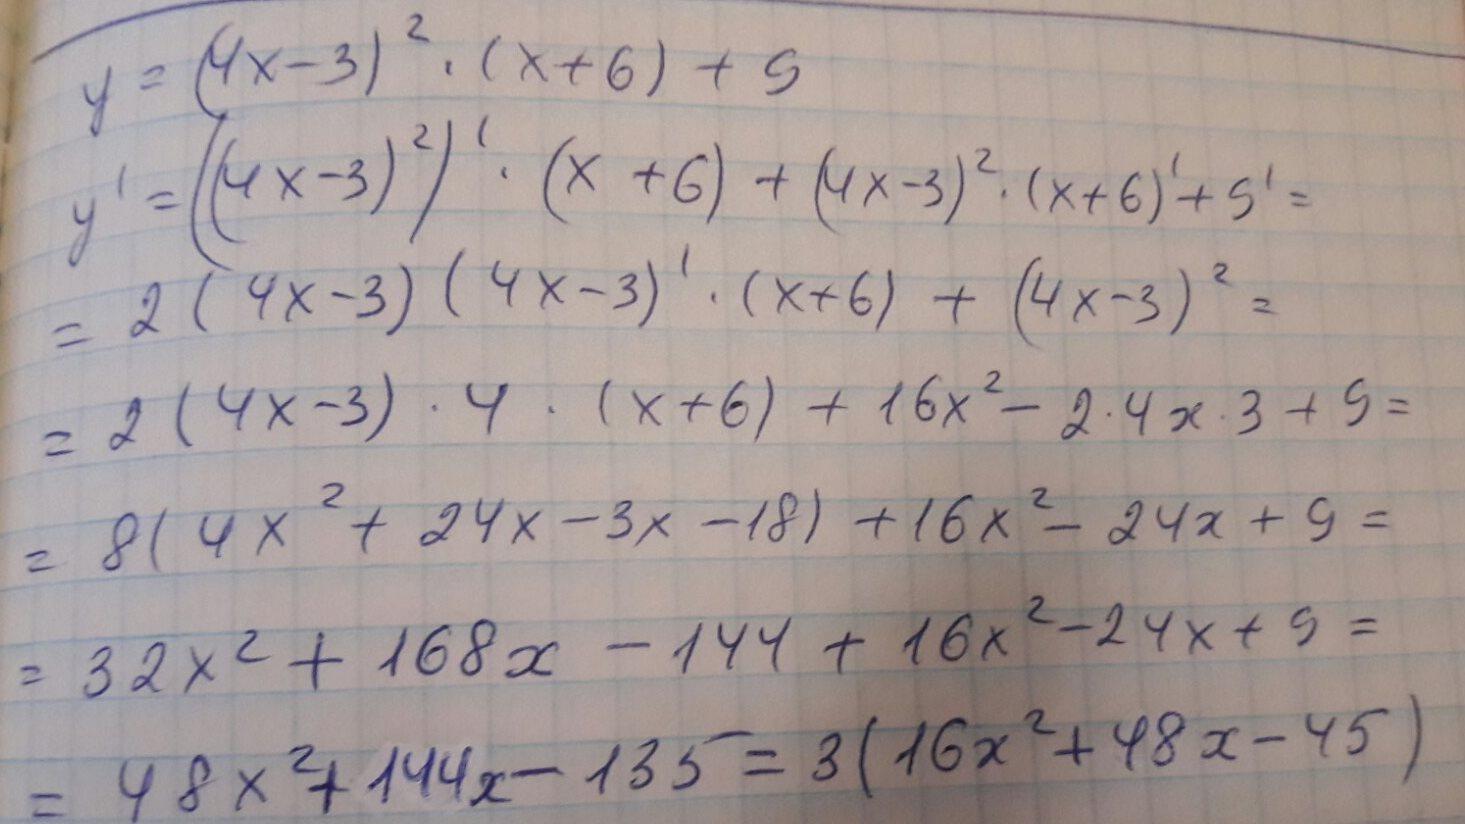 y = (4x-3)² · (x+6) + 9
y' = ((4x-3)²)' · (x+6) + (4x-3)² · (x+6)' + 9' =
= 2(4x-3)(4x-3)' · (x+6) + (4x-3)² =
= 2(4x-3) · 4 · (x+6) + 16x² - 2·4x·3 + 9 =
= 8(4x² + 24x - 3x - 18) + 16x² - 24x + 9 =
= 32x² + 168x - 144 + 16x² - 24x + 9 =
= 48x² + 144x - 135 = 3(16x² + 48x - 45)